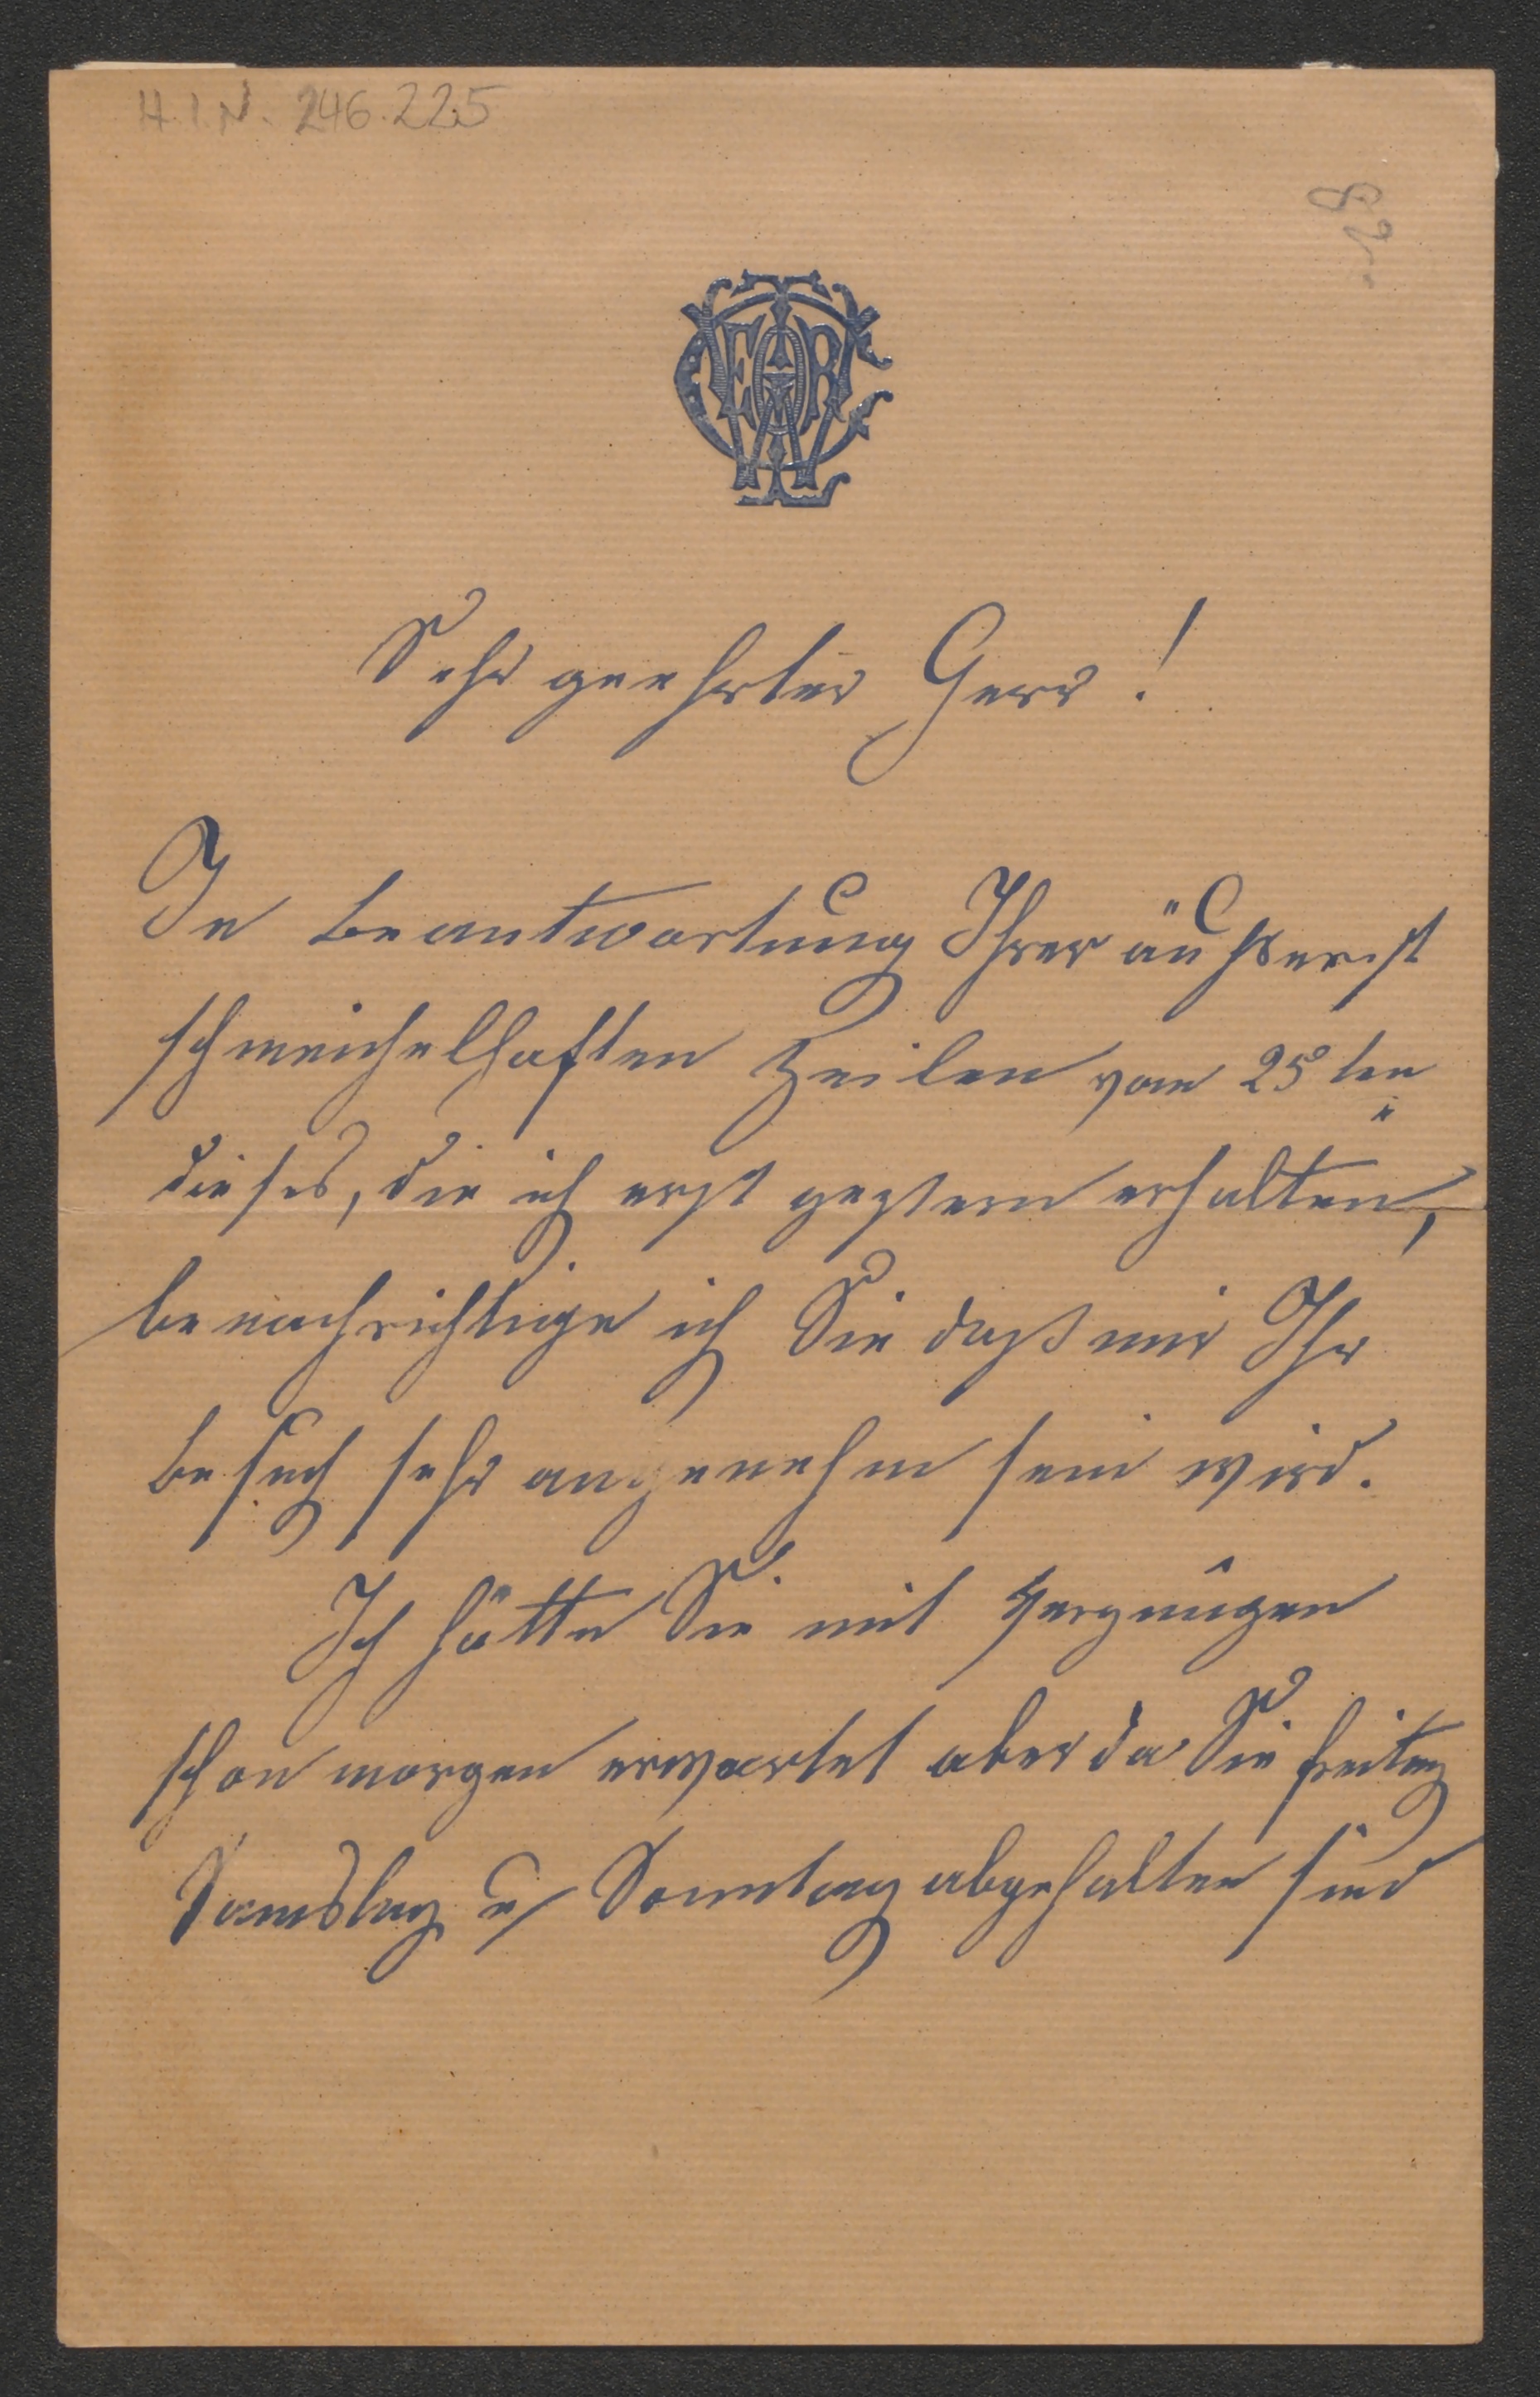 H.I.N. 246.225
Sehr geehrter Herr!
In Beantwortung Ihrer äußserst
schmeichelhaften Zeilen vom 25ten
dieses, die ich erst gestern erhalten,
benachrichtige ich Sie daß mir Ihr
Besuch sehr angenehm sein wird.
Ich hätte Sie mit Vergnügen
schon morgen erwartet aber da Sie Freitag
Samstag u Sonntag abgehalten sind